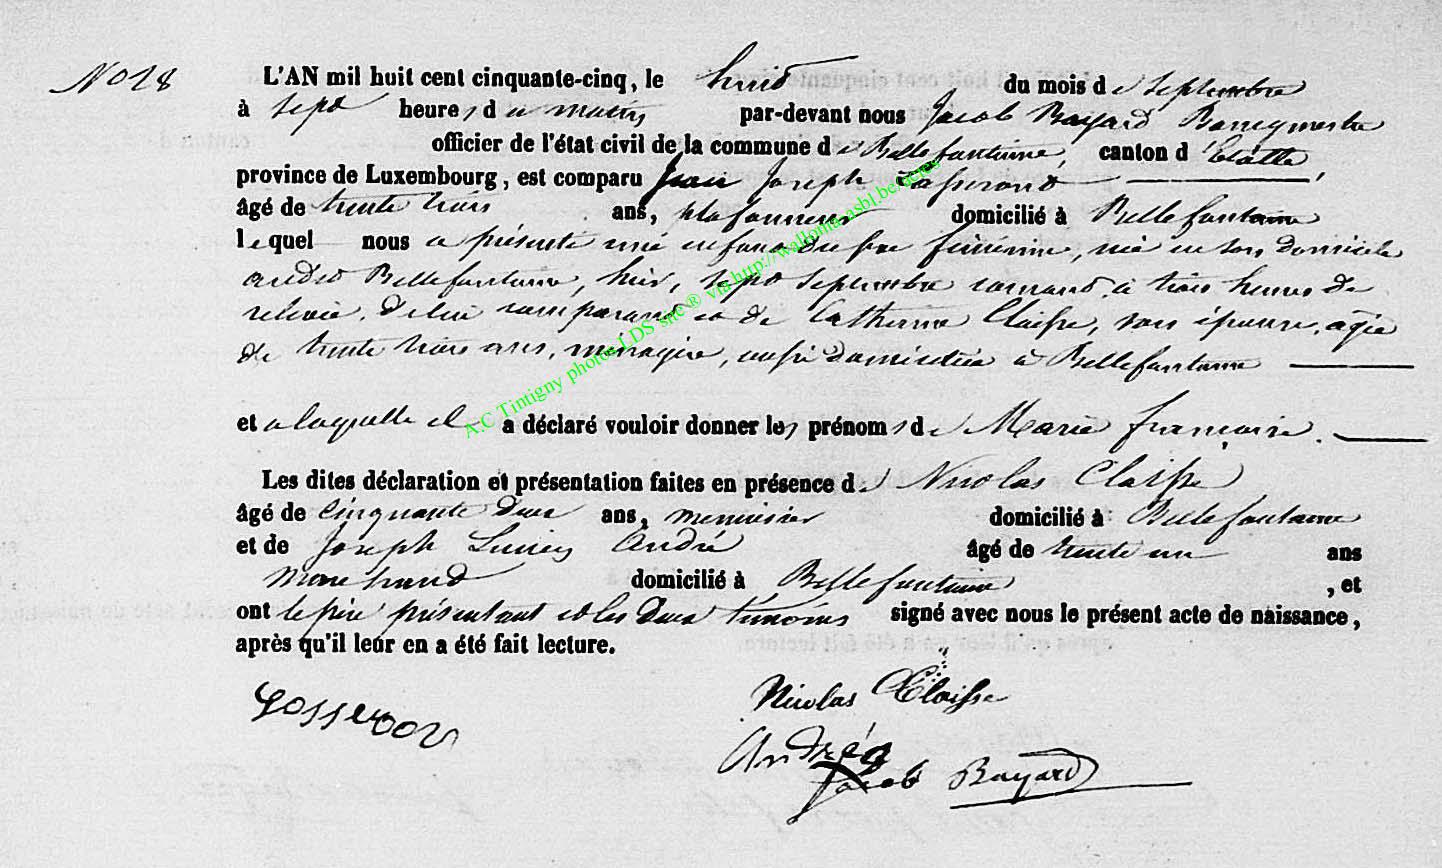 No 28
L'AN mil huit cent cinquante-cinq, le huit du mois de septembre
à sept heures du matin par-devant nous Jacob Bayard Bourgmestre
officier de l'état civil de la commune de Bellefontaine, canton d'Etalle
province de Luxembourg, est comparu Jean Joseph
âgé de trente trois ans, plafonneur domicilié à Bellefontaine
lequel nous a présenté une enfant du sexe féminine, née en son domicile
audit Bellefontaine, hier, sept septembre courant, à trois heures de
relevée, de lui comparant et de Catherine Claisse, son épouse, agée
de trente trois ans, ménagère, aussi domiciliée à Bellefontaine
et a laquelle il a déclaré vouloir donner les prénoms de Marie françoise.
Les dites déclaration et présentation faites en présence de Nicolas Claisse
âgé de cinquante deux ans, menuisier domicilié à Bellefontaine
et de Joseph Lucien André âgé de trente un ans
marchand domicilié à Bellefontaine, et
ont le père présentant et les deux témoins signé avec nous le présent acte de naissance,
après qu'il leur en a été fait lecture.
Nicolas Claisse
André
Jacob Bayard
A.C Tintigny photos LDS site ® via http://wallonia-asbl.be/actes